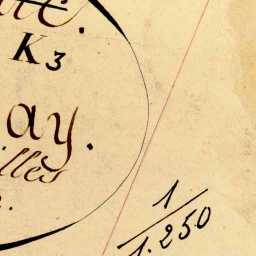 K3
ay.
illès
1/1.250